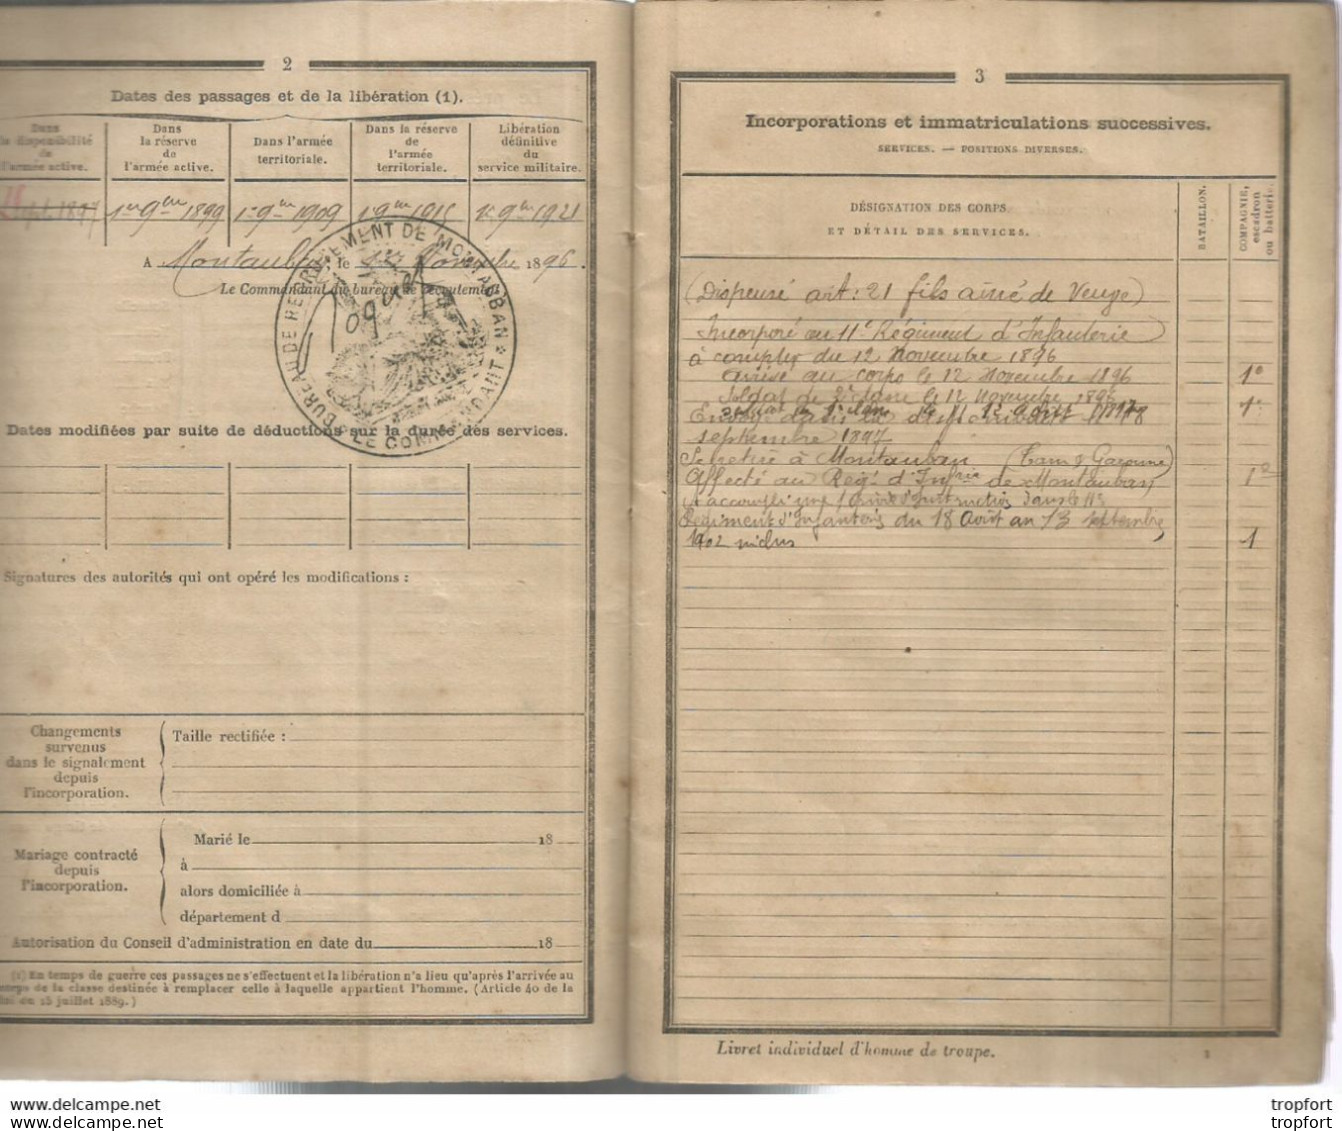 2
Dates des passages et de la libération (1).
Dans la disponibilité de l'armée active.
Dans la réserve de l'armée active.
Dans l'armée territoriale.
Dans la réserve de l'armée territoriale.
Libération définitive du service militaire.
1897
1er 9bre 1899
1er 9bre 1909
1er 9bre 1915
1er 9bre 1921
A Montauban, le Novembre 1896.
Le Commandant du bureau de recrutement
BUREAU DE RECRUTEMENT DE MONTAUBAN * LE COMMANDANT *
Dates modifiées par suite de déductions sur la durée des services.
Signatures des autorités qui ont opéré les modifications :
Changements survenus dans le signalement depuis l'incorporation.
Taille rectifiée :
Mariage contracté depuis l'incorporation.
Marié le 18
à
alors domiciliée à
département d
Autorisation du Conseil d'administration en date du 18
(1) En temps de guerre ces passages ne s'effectuent et la libération n'a lieu qu'après l'arrivée au
corps de la classe destinée à remplacer celle à laquelle appartient l'homme. (Article 40 de la
loi du 15 juillet 1889.)
3
Incorporations et immatriculations successives.
SERVICES. — POSITIONS DIVERSES.
DÉSIGNATION DES CORPS
ET DÉTAIL DES SERVICES.
BATAILLON.
COMPAGNIE, escadron ou batterie.
(Dispensé art: 21 fils aîné de Veuve)
Incorporé au 11e Régiment d'Infanterie
à compter du 12 Novembre 1896
arrivé au corps le 12 Novembre 1896 1e
Soldat de 2e classe le 12 Novembre 1896
1e
septembre 1897
Se retire à Montauban (Tarn & Garonne)
Affecté au Regt d'Infrie de Montauban 1e
a accompli une période d'instruction dans le 11e
Régiment d'Infanterie du 18 Août au 13 septembre
1902 inclus 1
Livret individuel d'homme de troupe.
www.delcampe.net
www.delcampe.net
tropfort
tropfort